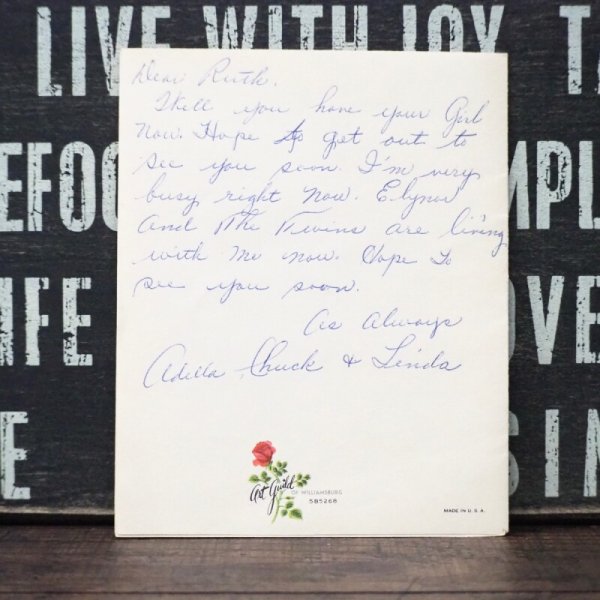 LIVE WITH JOY TA
EFOC
MPL
IFE
OVE
E
SIN
Dear Ruth,
Well you have your Girl
Now. Hope to get out to
See you soon. I'm very
busy right now. Elynor
And The Twins are living
with me now. Hope to
see you soon.
As Always
Adella, Chuck & Linda
Art Guild OF WILLIAMSBURG
5B5268
MADE IN U.S.A.